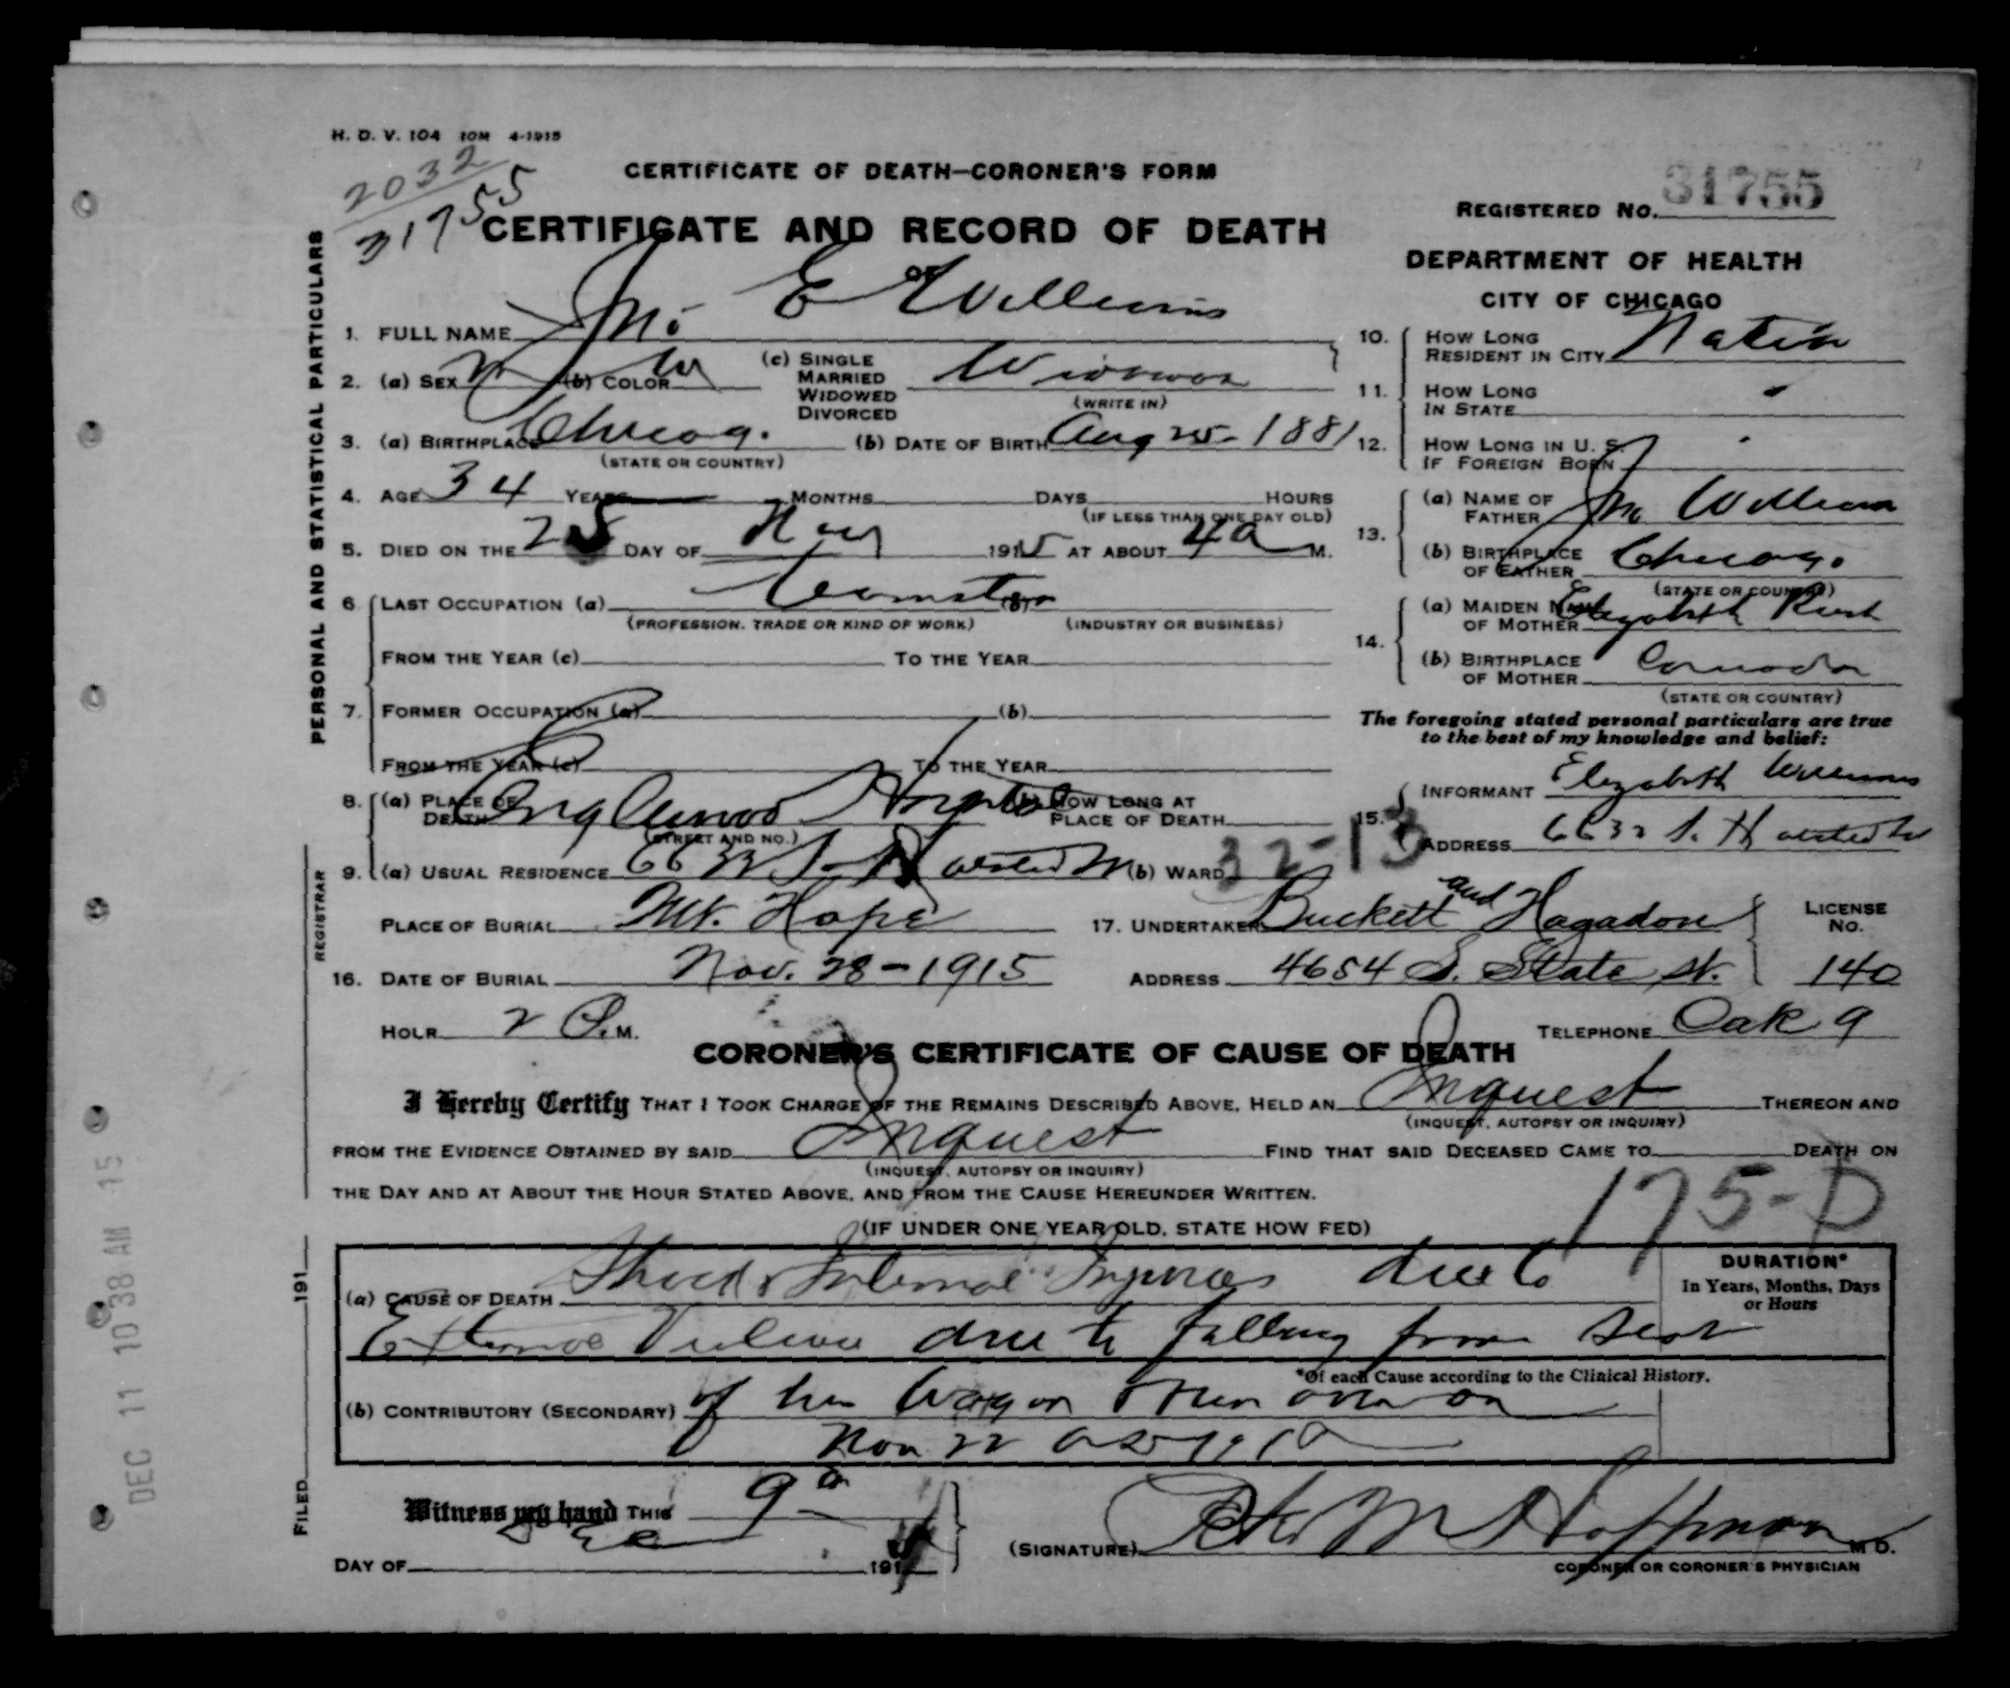 H. D. V. 104 10M 4-1915
2032
31755
CERTIFICATE OF DEATH—CORONER'S FORM
REGISTERED NO. 31755
CERTIFICATE AND RECORD OF DEATH
OF
DEPARTMENT OF HEALTH
CITY OF CHICAGO
PERSONAL AND STATISTICAL PARTICULARS
1. FULL NAME Jno E Williams
2. (a) SEX M (b) COLOR W (c) SINGLE MARRIED WIDOWED DIVORCED Widower
(WRITE IN)
3. (a) BIRTHPLACE Chicago. (b) DATE OF BIRTH Aug 25- 1881
(STATE OR COUNTRY)
4. AGE 34 YEARS MONTHS DAYS HOURS
(IF LESS THAN ONE DAY OLD)
5. DIED ON THE 25 DAY OF Nov 1915 AT ABOUT 4 a M.
6. LAST OCCUPATION (a) Teamster (b)
(PROFESSION, TRADE OR KIND OF WORK) (INDUSTRY OR BUSINESS)
FROM THE YEAR (c) TO THE YEAR
7. FORMER OCCUPATION (a) (b)
FROM THE YEAR (c) TO THE YEAR
8. (a) PLACE OF DEATH Englewood Hospital (b) HOW LONG AT PLACE OF DEATH
(STREET AND NO.)
9. (a) USUAL RESIDENCE 6632 S. Halsted (b) WARD 32-13
10. HOW LONG RESIDENT IN CITY Native
11. HOW LONG IN STATE
12. HOW LONG IN U. S. IF FOREIGN BORN
13. (a) NAME OF FATHER Jno Williams
(b) BIRTHPLACE OF FATHER Chicago.
(STATE OR COUNTRY)
14. (a) MAIDEN NAME OF MOTHER Elizabeth
(b) BIRTHPLACE OF MOTHER Canada
(STATE OR COUNTRY)
The foregoing stated personal particulars are true
to the best of my knowledge and belief:
15. INFORMANT Elizabeth Williams
ADDRESS 6632 S. Halsted
REGISTRAR
PLACE OF BURIAL Mt. Hope
16. DATE OF BURIAL Nov. 28-1915
HOUR 2 P. M.
17. UNDERTAKER Buckett and Hagadone
ADDRESS 4654 S. State st.
LICENSE NO. 140
TELEPHONE Oak 9
CORONER'S CERTIFICATE OF CAUSE OF DEATH
I Hereby Certify THAT I TOOK CHARGE OF THE REMAINS DESCRIBED ABOVE, HELD AN Inquest THEREON AND
(INQUEST, AUTOPSY OR INQUIRY)
FROM THE EVIDENCE OBTAINED BY SAID Inquest FIND THAT SAID DECEASED CAME TO DEATH ON
(INQUEST, AUTOPSY OR INQUIRY)
THE DAY AND AT ABOUT THE HOUR STATED ABOVE, AND FROM THE CAUSE HEREUNDER WRITTEN.
175-D
(IF UNDER ONE YEAR OLD, STATE HOW FED)
(a) CAUSE OF DEATH Shock & Internal Injuries due to
External Violence due to falling from seat
DURATION*
In Years, Months, Days
or Hours
*Of each Cause according to the Clinical History.
(b) CONTRIBUTORY (SECONDARY) of his Wagon & run over on
Nov 22
FILED 191
DEC 11 10 38 AM 15
Witness my hand THIS 9th
DAY OF Dec 191
(SIGNATURE) Peter M Hoffman M D.
CORONER OR CORONER'S PHYSICIAN